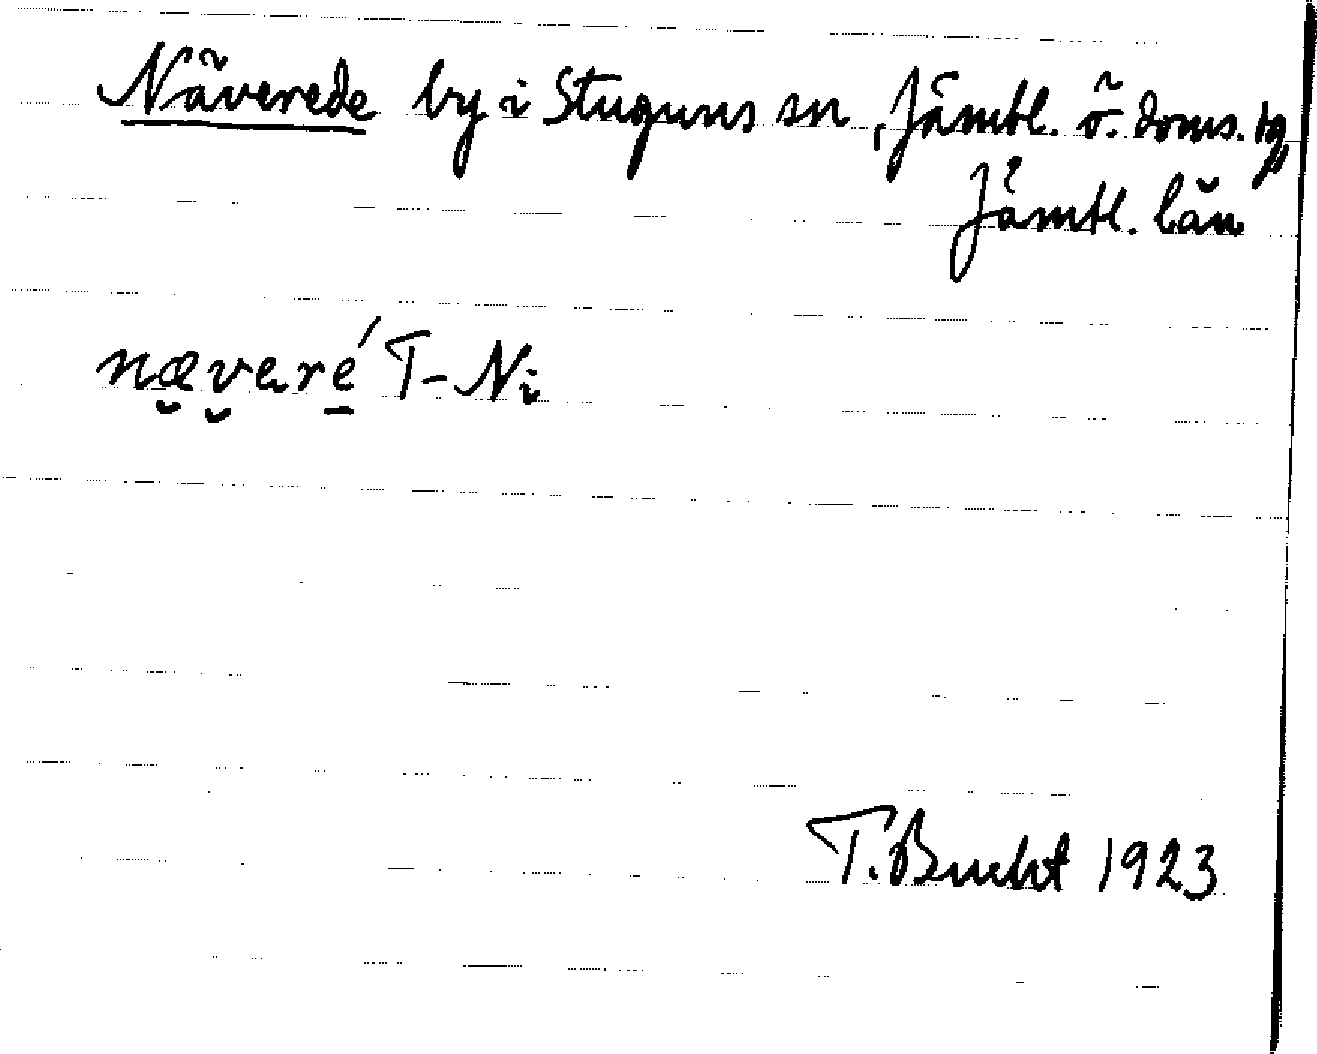 Näverede by i Stuguns sn, Jämtl. ö. doms. tg
Jämtl. län
næ̮v̮ere̱´ T-Ni
T. Bucht 1923